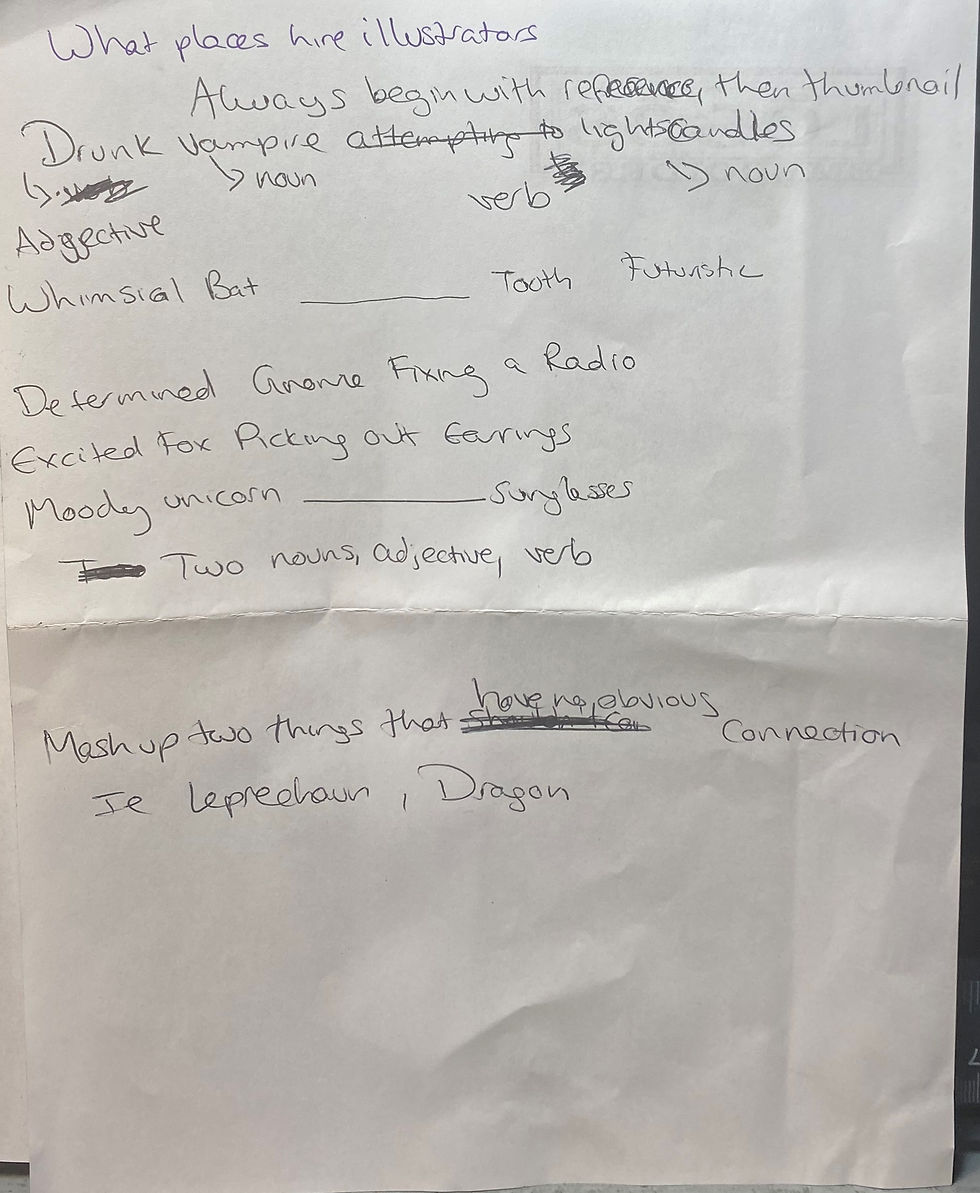 What places hire illustrators
Always begin with reference, then thumbnail
Drunk vampire attempting to lights candles
noun
noun
verb
Adgective
Whimsial Bat ________ Tooth Futuristic
Determined Gnome Fixing a Radio
Excited Fox Picking out Earings
Moody unicorn ________ Sunglasses
Two nouns, adjective, verb
have no obvious
Mash up two things that Connection
Ie Leprechaun, Dragon